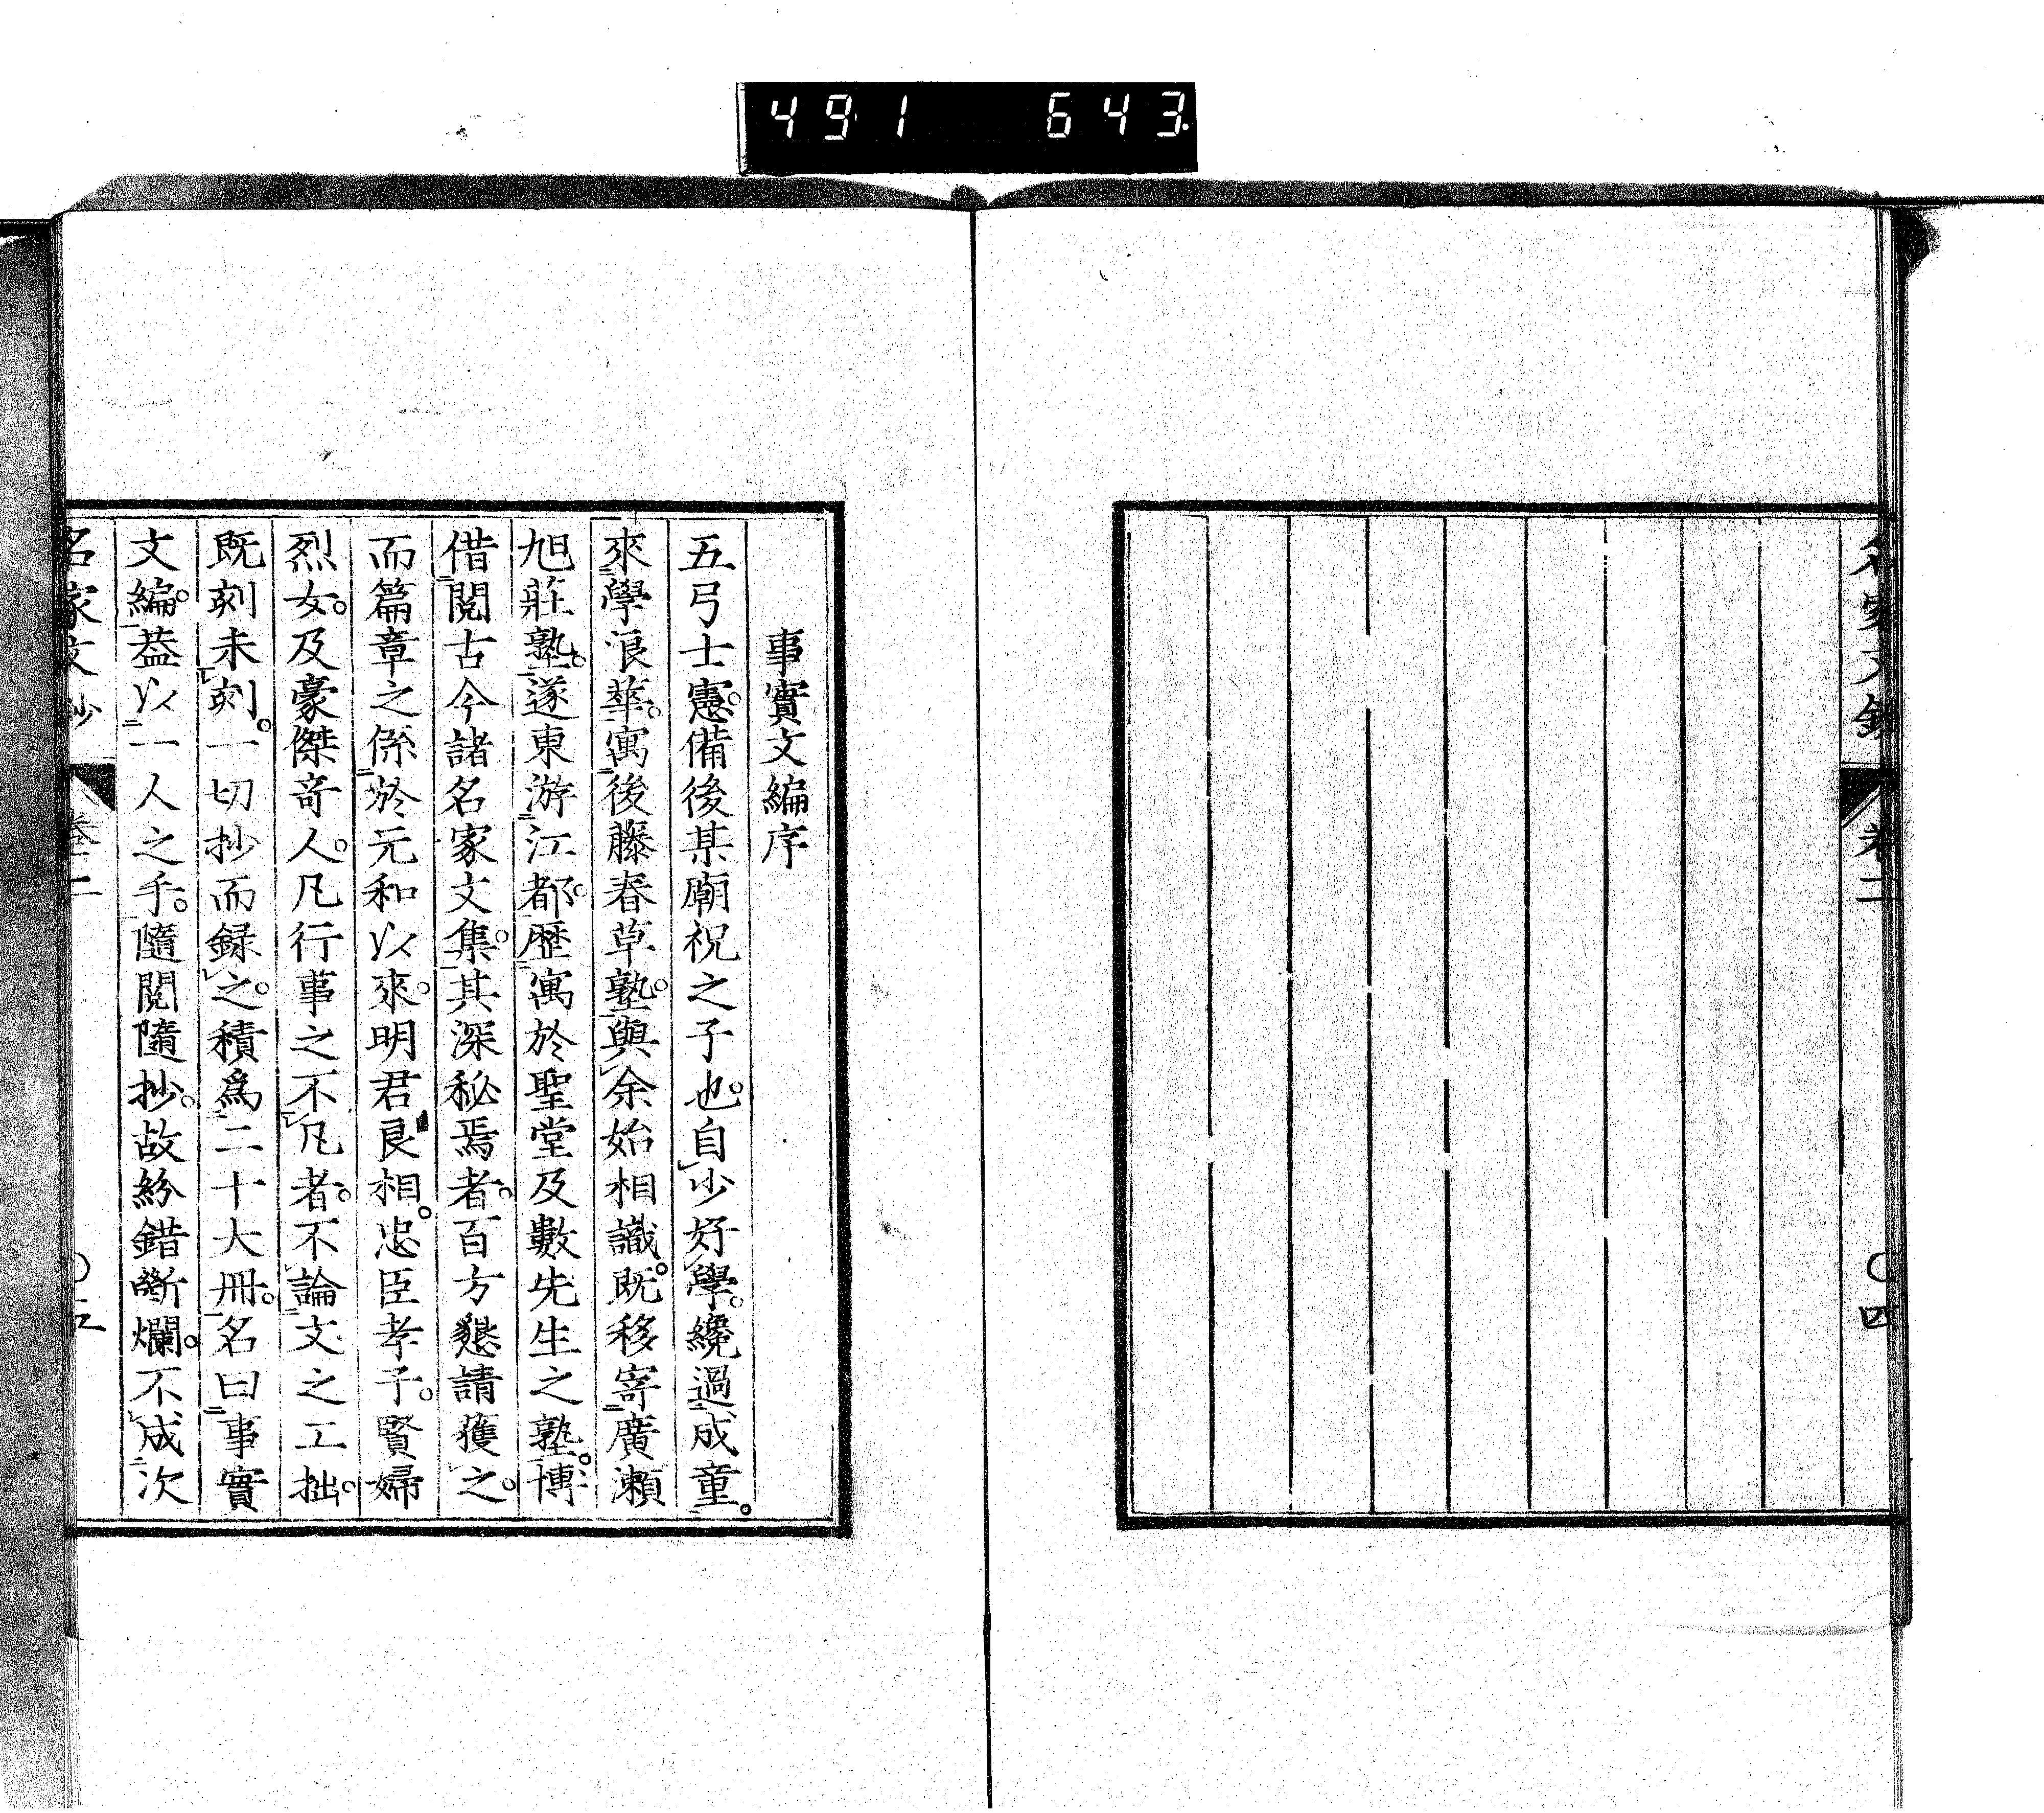 491 643
名家文鈔 卷二 〇四
事實文編序
五弓士憲。備後某廟祝之子也。自少好學。纔過成童。
來學浪華。寓後藤春草塾。與余始相識。既移寄廣瀨
旭莊塾。遂東游江都。歷寓於聖堂及數先生之塾。博
借閱古今諸名家文集。其深秘焉者。百方懇請獲之。
而篇章之係於元和以來。明君良相。忠臣孝子。賢婦
烈女。及豪傑奇人。凡行事之不凡者。不論文之工拙。
既刻未刻。一切抄而録之。積爲二十大冊。名曰事實
文編。葢以一人之手。隨閱隨抄。故紛錯斷爛。不成次
名家文鈔 卷二 〇五